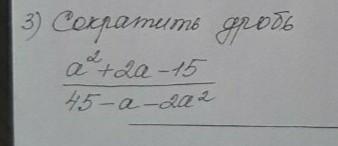 3) Сократить дробь
a²+2a-15
45-a-2a²